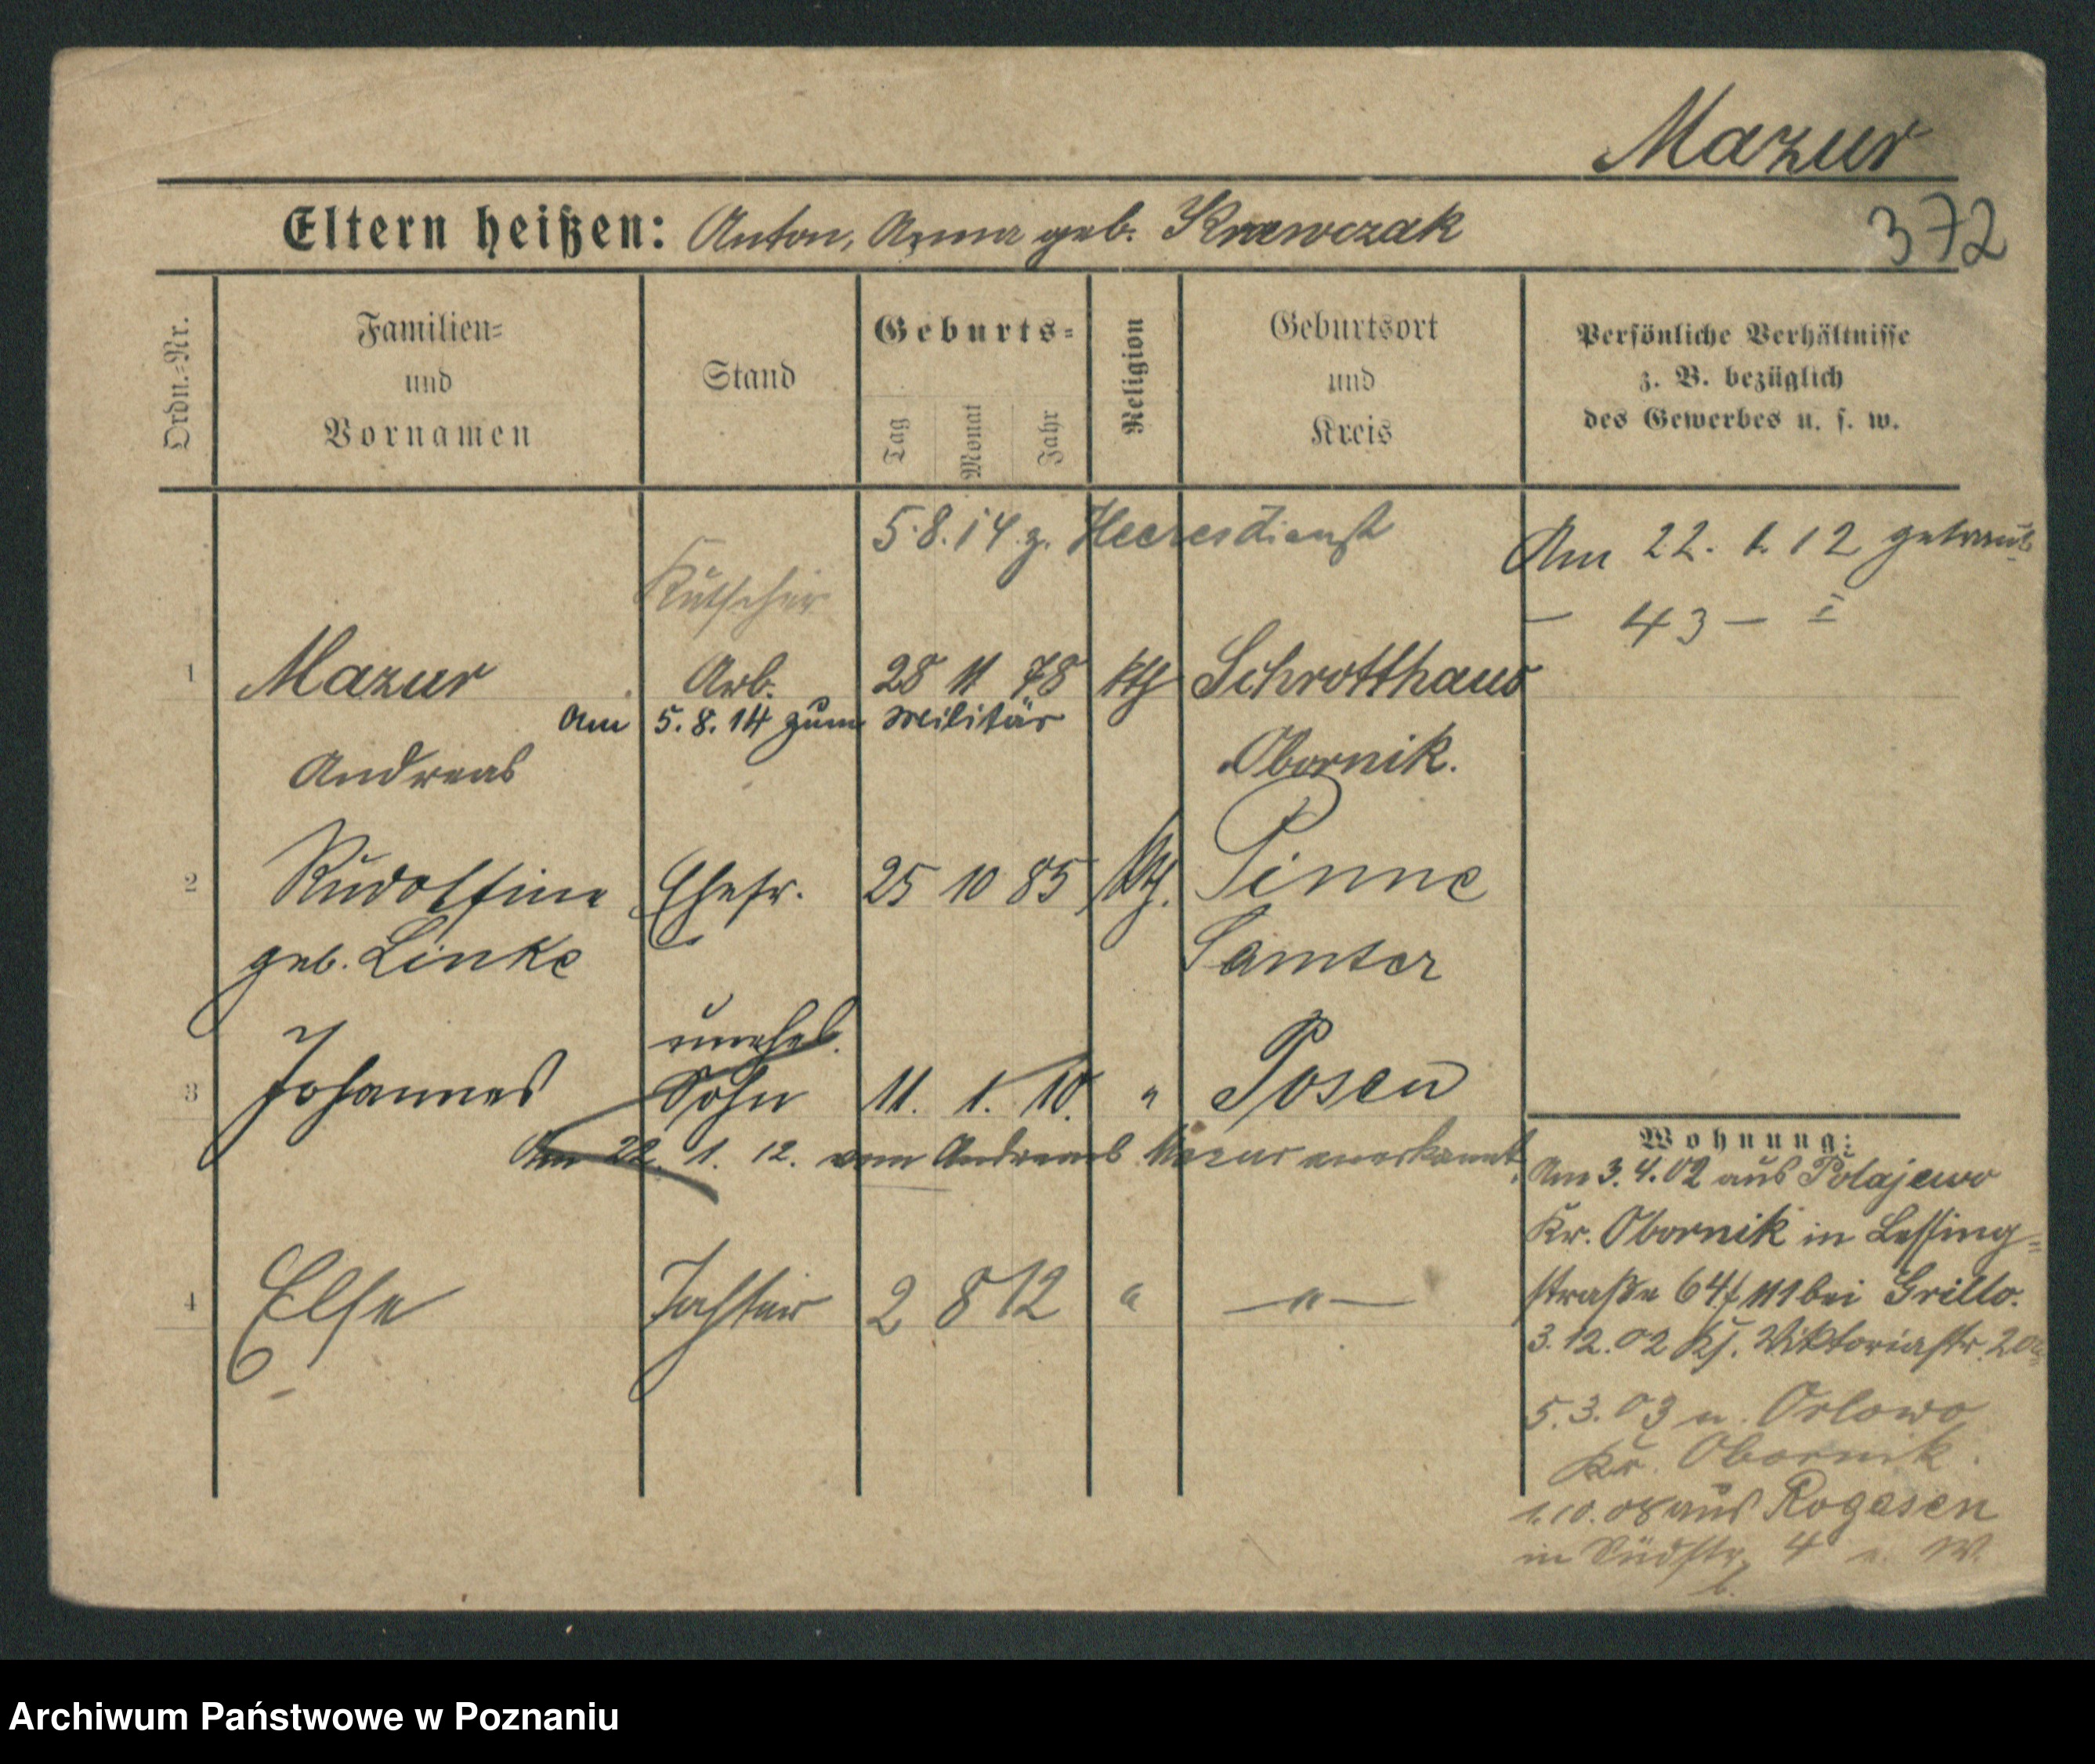 Mazur
Eltern heißen: Anton, Anna geb. Krawczak
372
Ordn.-Nr.
Familien-
und
Vornamen
Stand
Geburts-
Tag
Monat
Jahr
Religion
Geburtsort
und
Kreis
Persönliche Verhältnisse
z. B. bezüglich
des Gewerbes u. s. w.
5.8.14 z. Heeresdienst
Am 22. 1. 12 getraut
— 43 — I
Kutscher
1 Mazur Arb. 28 11 78 kth Schrotthaus
Am 5.8.14 zum Militär
Andreas Obornik.
2 Rudolfine Ehefr. 25 10 85 kth. Pinne
geb. Linke Samter
unehel.
3 Johannes Sohn 11. 1. 10. " Posen
Am 22. 1. 12. vom Andreas Mazur anerkannt.
4 Else Tochter 2 8 12 " —"—
Wohnung:
Am 3.4.02 aus Polajewo
Kr. Obornik in Lessing-
straße 64 III bei Grillo.
3.12.02 Viktoriastr. 20
5.3.03 n. Orlowo
Kr. Obornik.
1.10.08 aus Rogasen
in Südstr. 4 W.
Archiwum Państwowe w Poznaniu